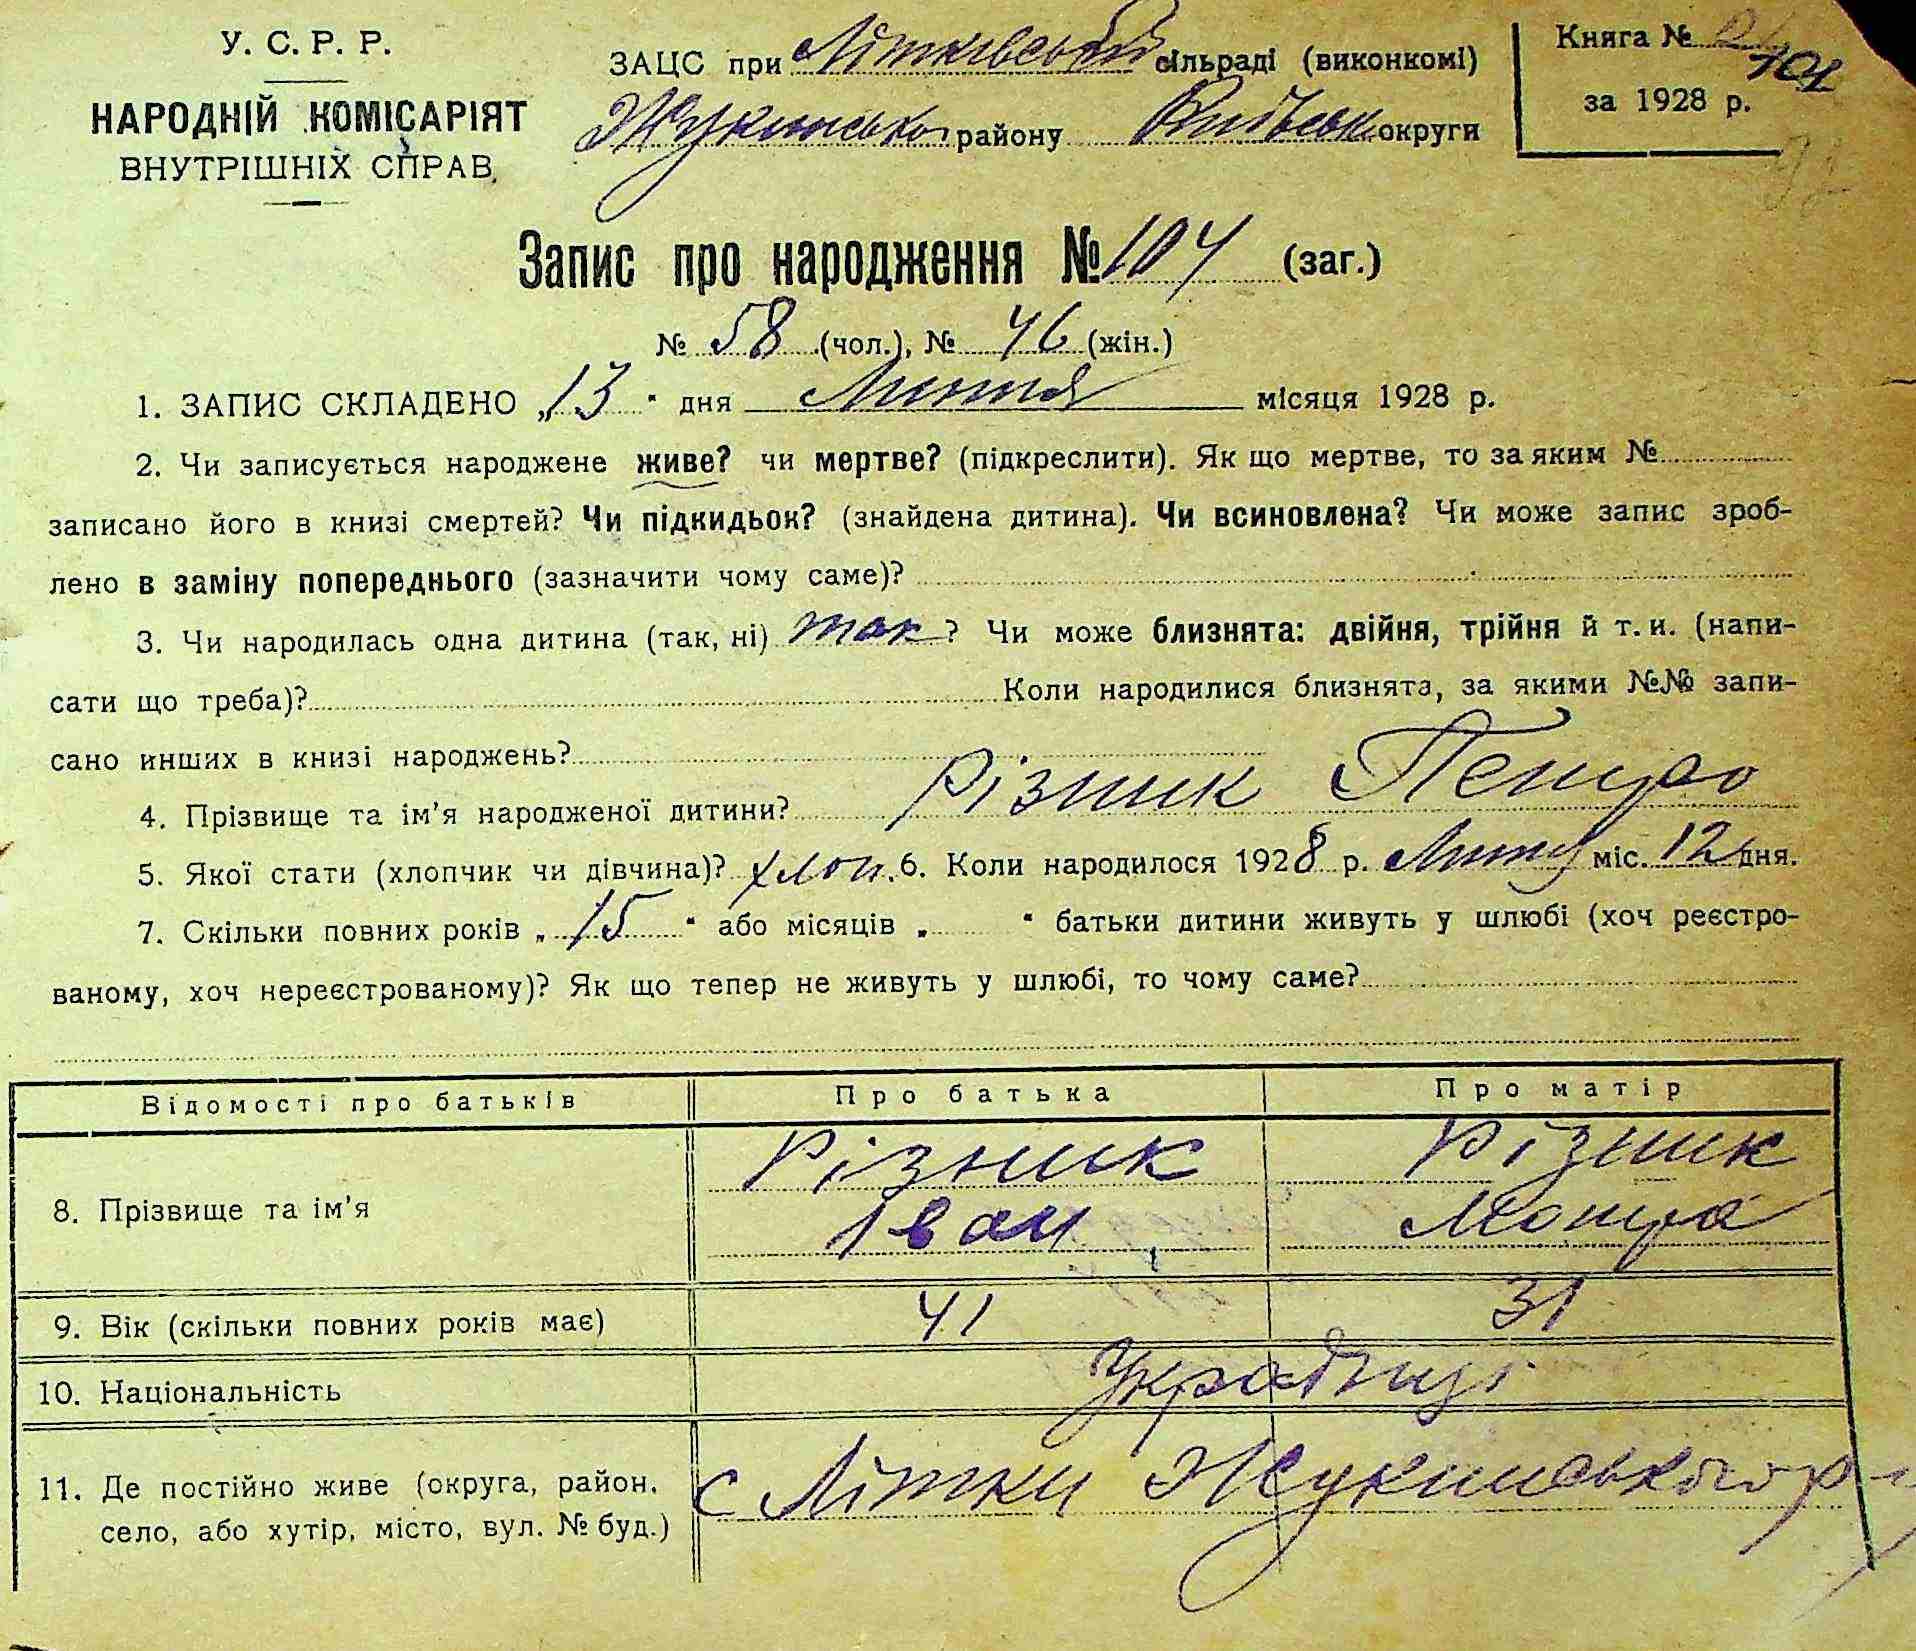 У. С. Р. Р.
НАРОДНІЙ КОМІСАРІЯТ
ВНУТРІШНІХ СПРАВ.
ЗАЦС при Літківській сільраді (виконкомі)
Жукинського району Київськ округи
Книга №
101
за 1928 р.
Запис про народження № 104 (заг.)
№ 58 (чол.), № 46 (жін.)
1. ЗАПИС СКЛАДЕНО „13“ дня Лютня місяця 1928 р.
2. Чи записується народжене живе? чи мертве? (підкреслити). Як що мертве, то за яким №
записано його в книзі смертей? Чи підкидьок? (знайдена дитина). Чи всиновлена? Чи може запис зроб-
лено в заміну попереднього (зазначити чому саме)?
3. Чи народилась одна дитина (так, ні) так? Чи може близнята: двійня, трійня й т. и. (напи-
сати що треба)? Коли народилися близнята, за якими №№ запи-
сано инших в книзі народжень?
4. Прізвище та ім’я народженої дитини? Різник Петро
5. Якої стати (хлопчик чи дівчина)? хлоп. 6. Коли народилося 1928 р. міс. 12 дня.
7. Скільки повних років „15“ або місяців „ “ батьки дитини живуть у шлюбі (хоч реєстро-
ваному, хоч нереєстрованому)? Як що тепер не живуть у шлюбі, то чому саме?
Відомості про батьків Про батька Про матір
8. Прізвище та ім’я Різник Іван Різник Мотря
9. Вік (скільки повних років має) 41 31
10. Національність Українці
11. Де постійно живе (округа, район, село, або хутір, місто, вул. № буд.) с Літки Жукинського р-у